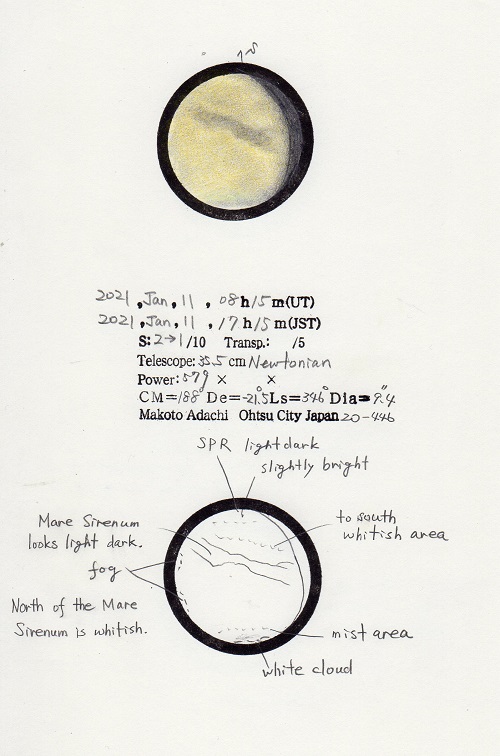 2021, Jan, 11, 08h 15m(UT)
2021, Jan, 11, 17h 15m(JST)
S: 2→1/10 Transp.: /5
Telescope: 35.5 cm Newtonian
Power: 579 × ×
CM=188° De=-21.5° Ls=346° Dia=9.4"
Makoto Adachi Ohtsu City Japan 20-446
SPR light dark
slightly bright
Mare Sirenum
looks light dark.
to south
whitish area
fog
North of the Mare
Sirenum is whitish.
mist area
white cloud